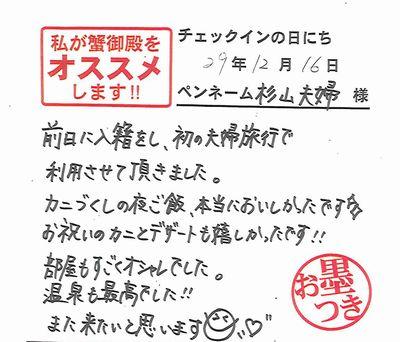 私が蟹御殿を
オススメ
します!!
チェックインの日にち
29年12月16日
ペンネーム 杉山夫婦 様
前日に入籍をし、初の夫婦旅行で
利用させて頂きました。
カニづくしの夜ご飯、本当においしかったです☆
お祝いのカニとデザートも嬉しかったです!!
部屋もすごくオシャレでした。
温泉も最高でした!!
また来たいと思います
お墨つき